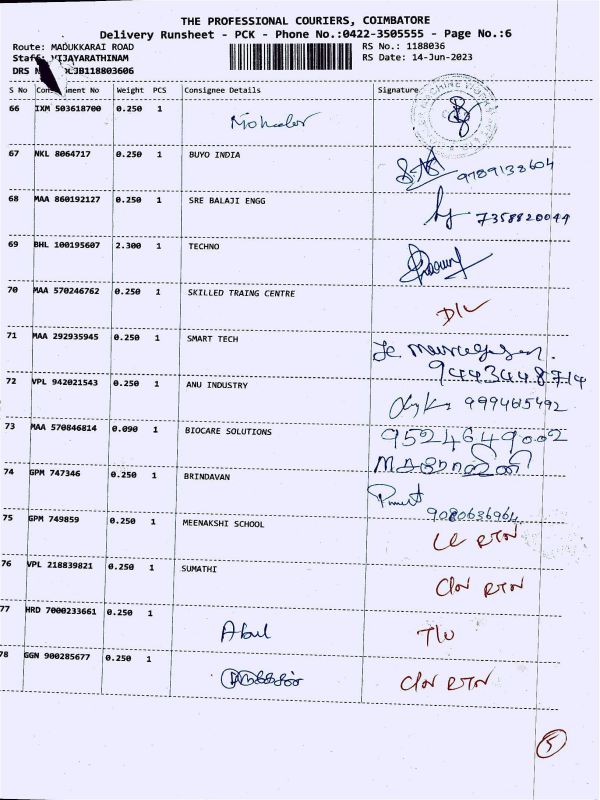 THE PROFESSIONAL COURIERS, COIMBATORE
Delivery Runsheet - PCK - Phone No.:0422-3505555 - Page No.:6
Route: MADUKKARAI ROAD RS No.: 1188036
VIJAYARATHINAM RS Date: 14-Jun-2023
DRS
S No Weight PCS Consignee Details Signature
66 IXM 503618700 0.250 1
67 NKL 8064717 0.250 1 BUYO INDIA 9789138604
68 MAA 860192127 0.250 1 SRE BALAJI ENGG 7358820049
69 BHL 100195607 2.300 1 TECHNO
70 MAA 570246762 0.250 1 SKILLED TRAING CENTRE D/L
71 MAA 292935945 0.250 1 SMART TECH
9443448714
72 VPL 942021543 0.250 1 ANU INDUSTRY 999465492
73 MAA 570846814 0.090 1 BIOCARE SOLUTIONS 9524649002
74 GPM 747346 0.250 1 BRINDAVAN
9080636964
75 GPM 749859 0.250 1 MEENAKSHI SCHOOL RTN
76 VPL 218839821 0.250 1 SUMATHI RTN
77 HRD 7000233661 0.250 1
78 GGN 900285677 0.250 1 RTN
5